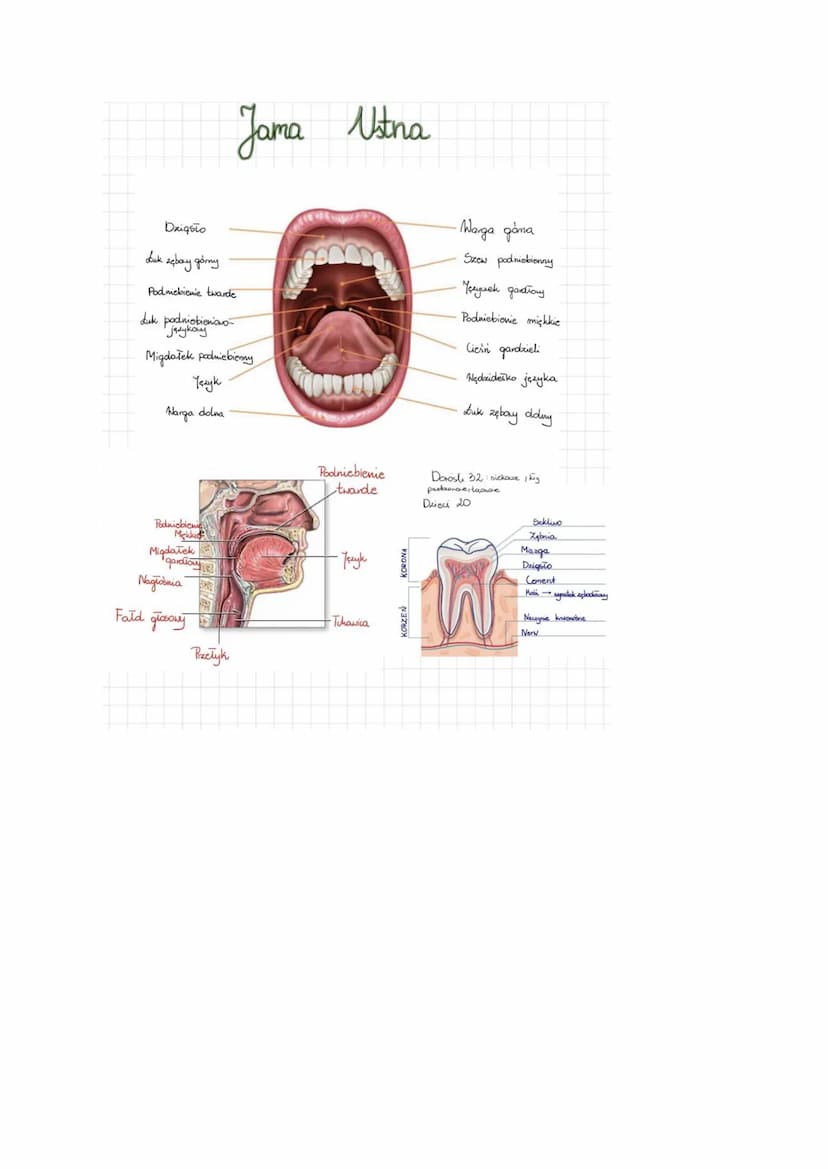 Jama Ustna
Dziąsło
Łuk zębowy górny
Podniebienie twarde
Łuk podniebienno-
językowy
Migdałek podniebienny
Język
Warga dolna
Warga górna
Szew podniebienny
Języczek gardłowy
Podniebienie miękkie
Cieśń gardzieli
Wędzidełko języka
Łuk zębowy dolny
Podniebienie
twarde
Podniebienie
Miękkie
Migdałek
gardłowy
Nagłośnia
Fałd głosowy
Przełyk
Język
Tchawica
Dorośli 32: siekacze, kły
przedtrzonowe, trzonowe
Dzieci 20
KORONA
KORZEŃ
Szkliwo
Zębina
Miazga
Dziąsło
Cement
Kość → wyrostek zębodołowy
Naczynie krwionośne
Nerw